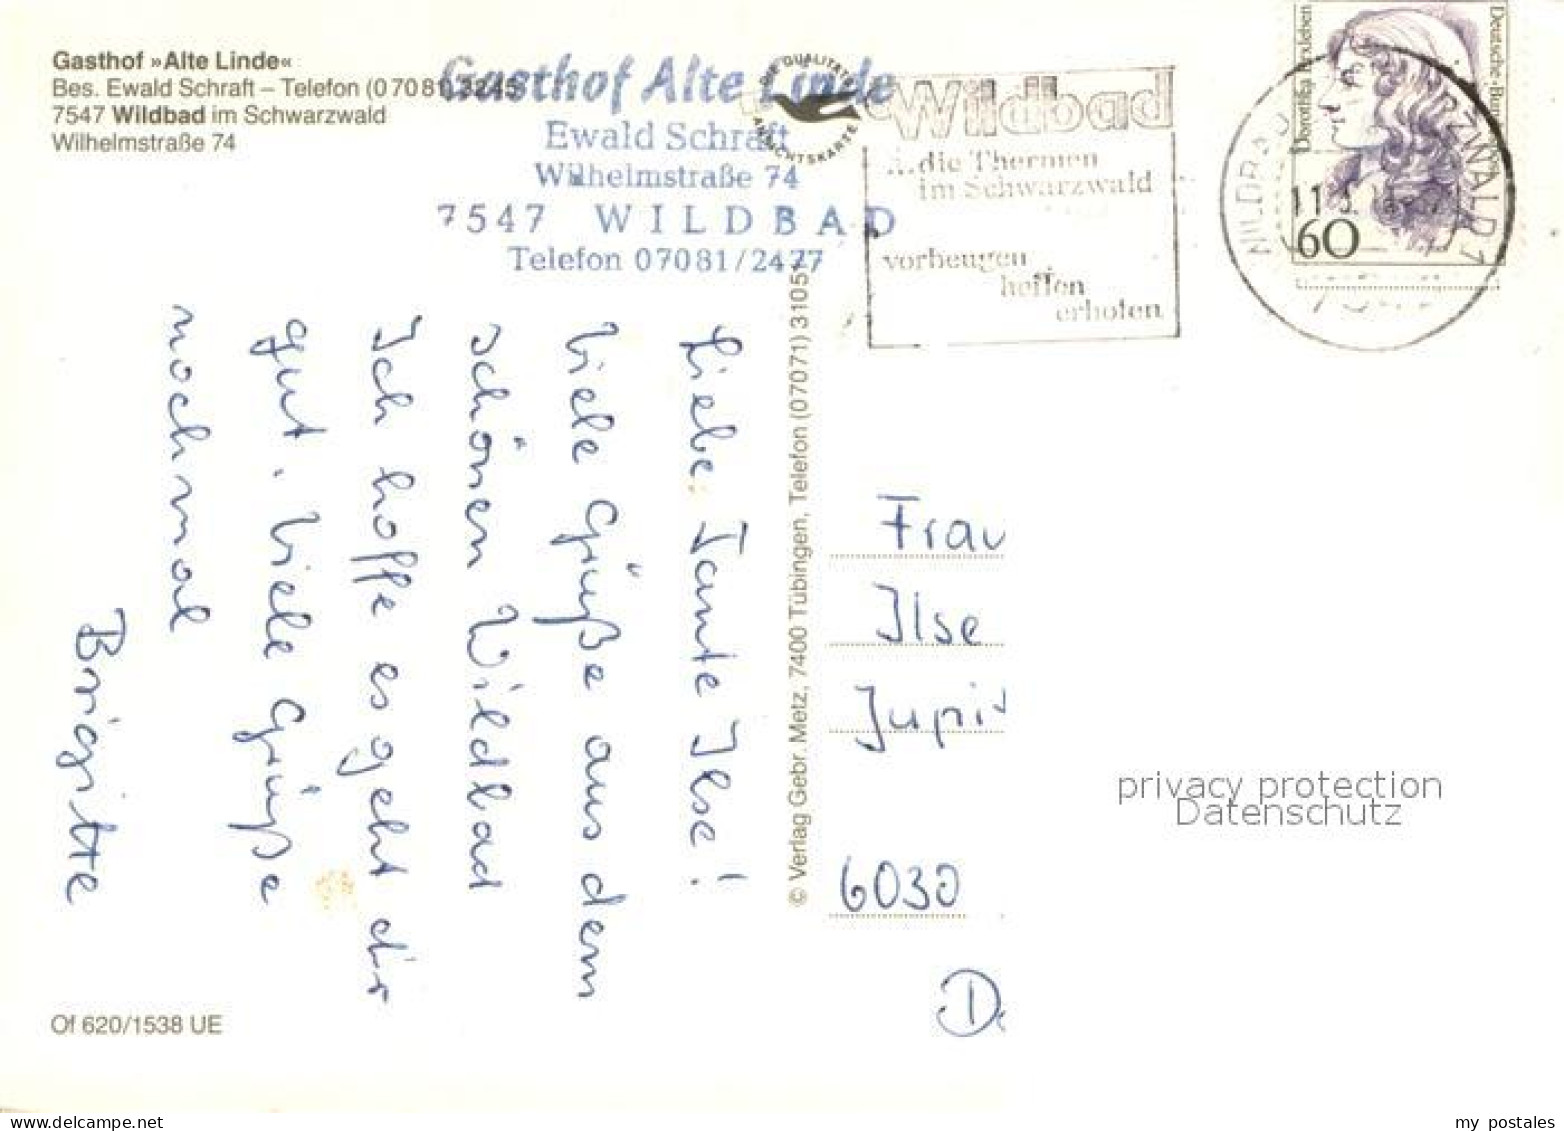 Gasthof »Alte Linde«
Bes. Ewald Schraft – Telefon (07081) 3245
7547 Wildbad im Schwarzwald
Wilhelmstraße 74
Gasthof Alte Linde
Ewald Schraft
Wilhelmstraße 74
7547 WILDBAD
Telefon 07081/2477
DIE QUALITÄTS
ANSICHTSKARTE
Wildbad
...die Thermen
im Schwarzwald
vorbeugen
helfen
erholen
WILDBAD SCHWARZWALD 1
Dorothea Erxleben
Deutsche
60
Liebe Tante Ilse!
Viele Grüße aus dem
schönen Wildbad
Ich hoffe es geht dir
gut. Viele Grüße
nochmal
Brigitte
© Verlag Gebr. Metz, 7400 Tübingen, Telefon (07071) 31051
Frau
Ilse
6030
privacy protection
Datenschutz
Of 620/1538 UE
www.delcampe.net
my postales